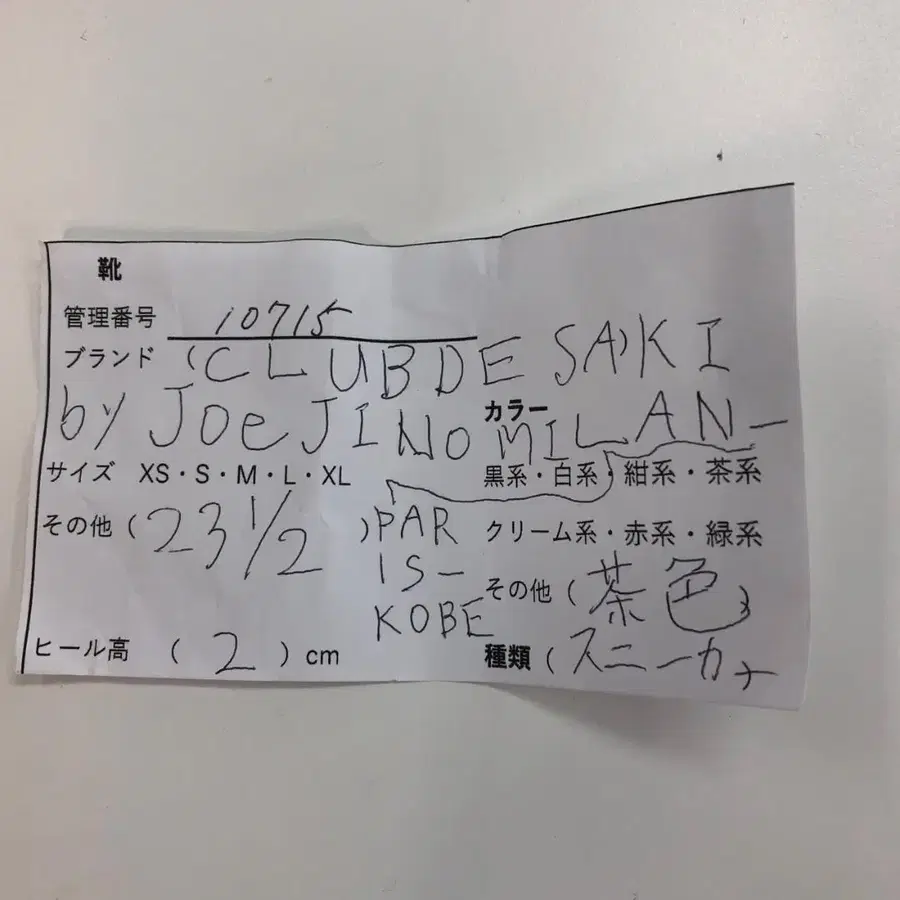 靴
管理番号 10715
ブランド (CLUB DE SA)KI
by Joe JINO MILAN-
カラー
サイズ XS・S・M・L・XL
黒系・白系・紺系・茶系
その他 (23 1/2)
PAR
IS-
KOBE
クリーム系・赤系・緑系
その他 (茶色)
ヒール高 (2) cm
種類 (スニーカー